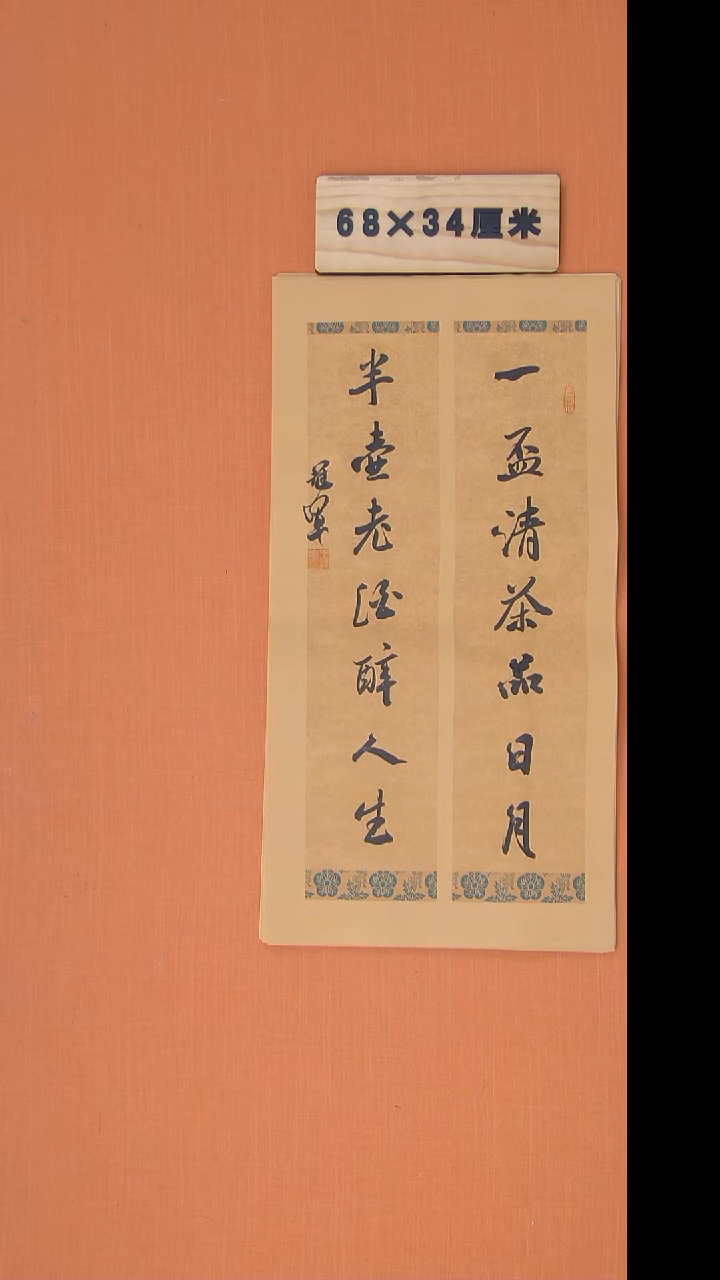 68×34厘米
一盃清茶品日月
半壶老酒醉人生